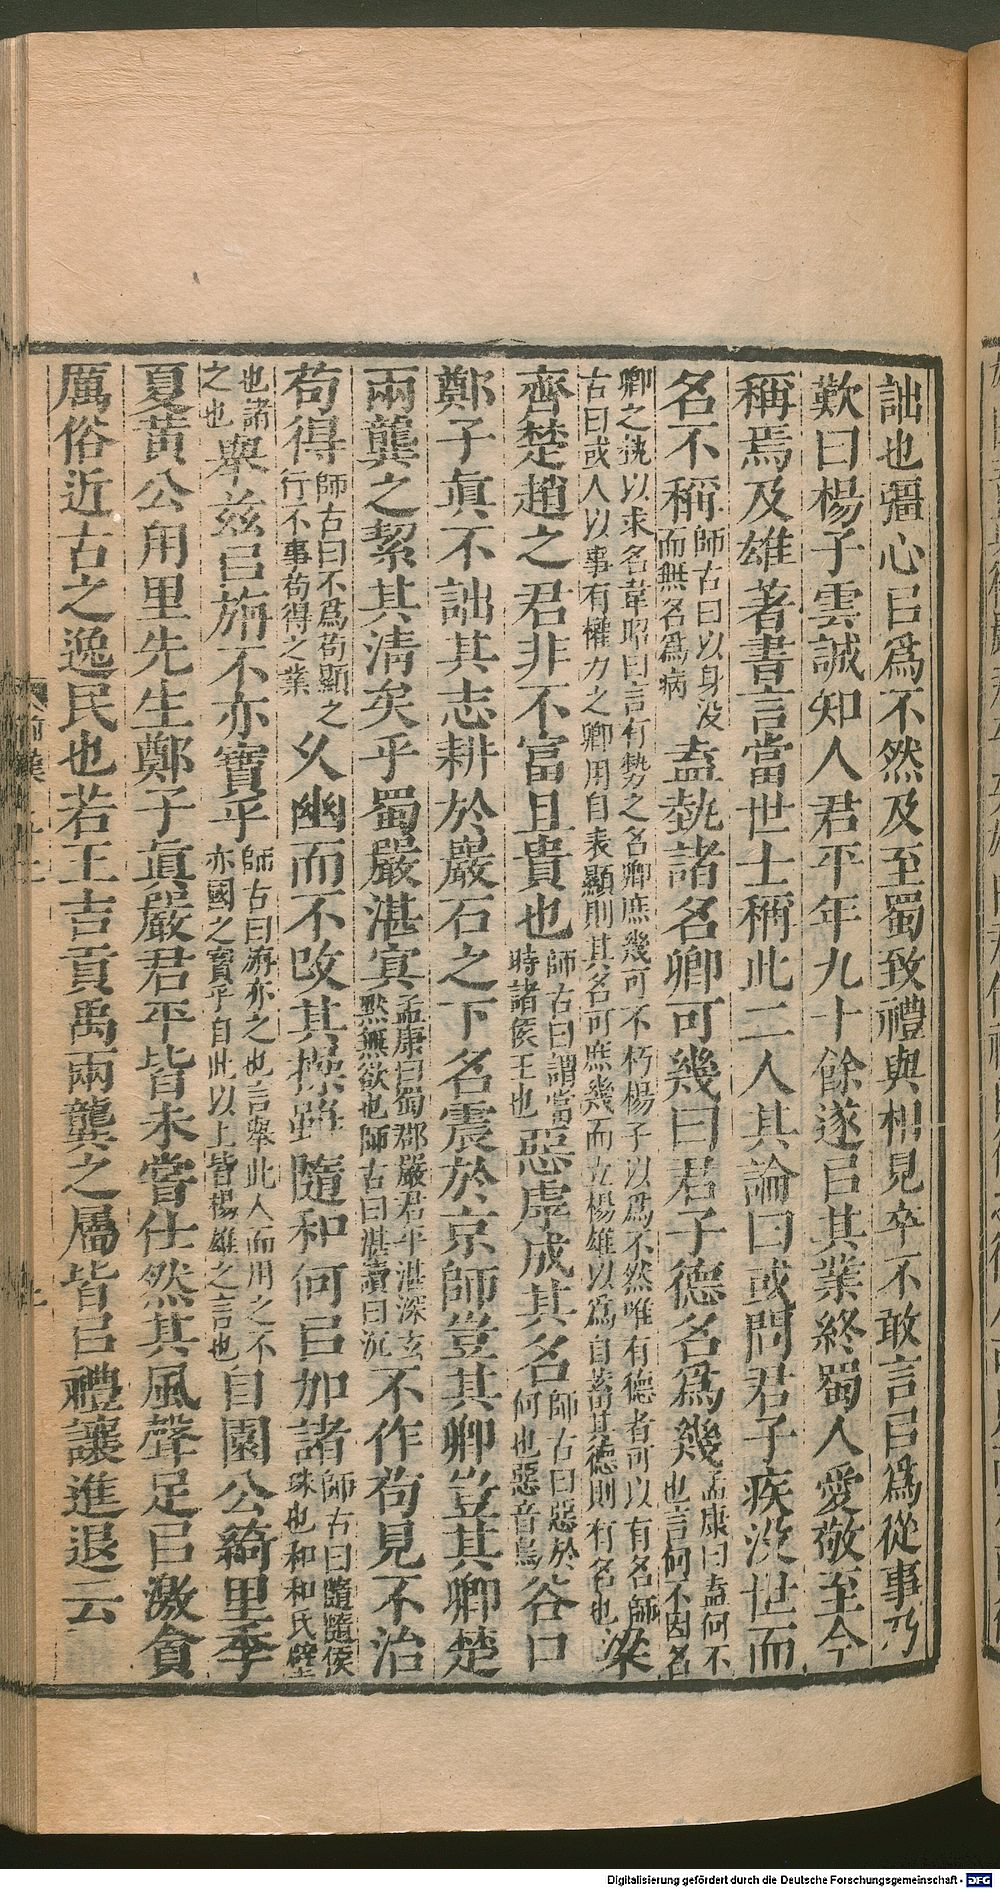 詘也彊心㠯為不然及至蜀致禮與相見卒不敢言㠯為從事乃
歎曰楊子雲誠知人君平年九十餘遂㠯其業終蜀人愛敬至今
稱焉及雄著書言當世士稱此二人其論曰或問君子疾没世而
名不稱師古曰以身没而無名為病盍埶諸名卿可幾曰君子德名為幾孟康曰盍何不也言何不因名
卿之埶以求名韋昭曰言有勢之名卿庶幾可不朽楊子以為不然唯有德者可以有名師古曰或人以事有權力之卿用自表顯則其名可庶幾而立楊雄以為自蓄其德則有名也梁
齊楚趙之君非不富且貴也師古曰謂當時諸侯王也惡虖成其名師古曰惡於何也惡音烏谷口
鄭子真不詘其志耕於巖石之下名震於京師豈其卿豈其卿楚
兩龔之絜其清矣乎蜀嚴湛冥孟康曰蜀郡嚴君平湛深玄默無欲也師古曰湛讀曰沉不作苟見不治
苟得師古曰不為苟顯之行不事苟得之業久幽而不改其操雖隨和何㠯加諸師古曰隨隨侯珠也和和氏璧
也諸之也舉兹㠯旃不亦寶乎師古曰旃亦之也言舉此人而用之不亦國之寶乎自此以上皆楊雄之言也自園公綺里季
夏黃公甪里先生鄭子真嚴君平皆未嘗仕然其風聲足㠯激貪
厲俗近古之逸民也若王吉貢禹兩龔之屬皆㠯禮讓進退云
Digitalisierung gefördert durch die Deutsche Forschungsgemeinschaft - DFG